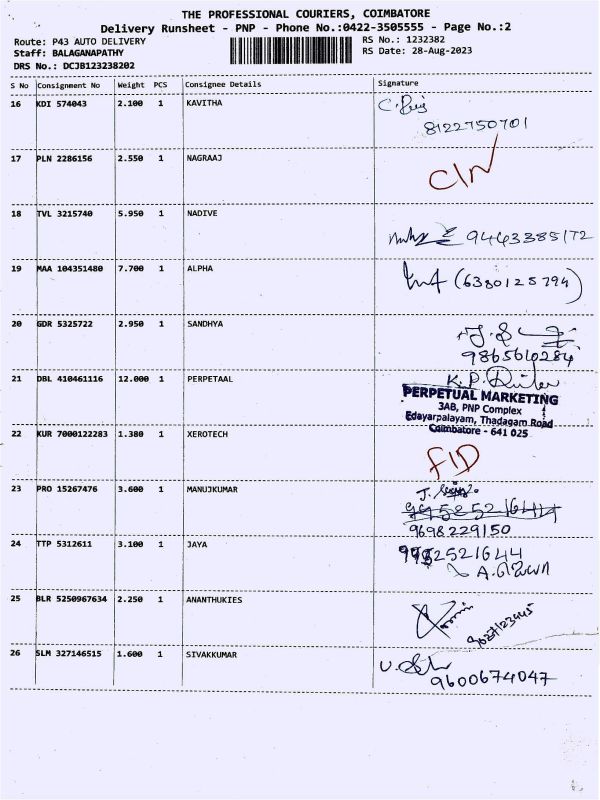 THE PROFESSIONAL COURIERS, COIMBATORE
Delivery Runsheet - PNP - Phone No.:0422-3505555 - Page No.:2
Route: P43 AUTO DELIVERY RS No.: 1232382
Staff: BALAGANAPATHY RS Date: 28-Aug-2023
DRS No.: DCJB123238202
S No Consignment No Weight PCS Consignee Details Signature
16 KDI 574043 2.100 1 KAVITHA
8122750701
17 PLN 2286156 2.550 1 NAGRAAJ
18 TVL 3215740 5.950 1 NADIVE
9443385172
19 MAA 104351480 7.700 1 ALPHA
(6380125794)
20 GDR 5325722 2.950 1 SANDHYA
9865610284
21 DBL 410461116 12.000 1 PERPETAAL
K.P.
PERPETUAL MARKETING
3AB, PNP Complex
Edayarpalayam, Thadagam Road
Coimbatore - 641 025
22 KUR 7000122283 1.380 1 XEROTECH
23 PRO 15267476 3.600 1 MANUJKUMAR
9698229150
24 TTP 5312611 3.100 1 JAYA
9952521644
25 BLR 5250967634 2.250 1 ANANTHUKIES
26 SLM 327146515 1.600 1 SIVAKKUMAR
9600674047